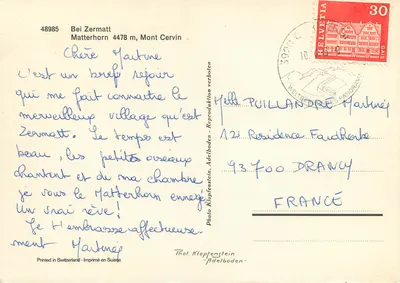 48985 Bei Zermatt
Matterhorn 4478 m, Mont Cervin
Chère Martine
c'est un bref séjour
qui me fait connaître le
merveilleux village qu'est
Zermatt. Le temps est
beau, les petits oiseaux
chantent et de ma chambre
je vois le Matterhorn enneigé
Un vrai rêve!
Je t'embrasse affectueuse-
ment Martiné
Printed in Switzerland - Imprimé en Suisse
Photo Klopfenstein, Adelboden - Reproduktion verboten
HELVETIA
30
Melle PUILLANDRE Martine
12 Residence Faidherbe
93700 DRANCY
FRANCE
Phot. Klopfenstein
Adelboden